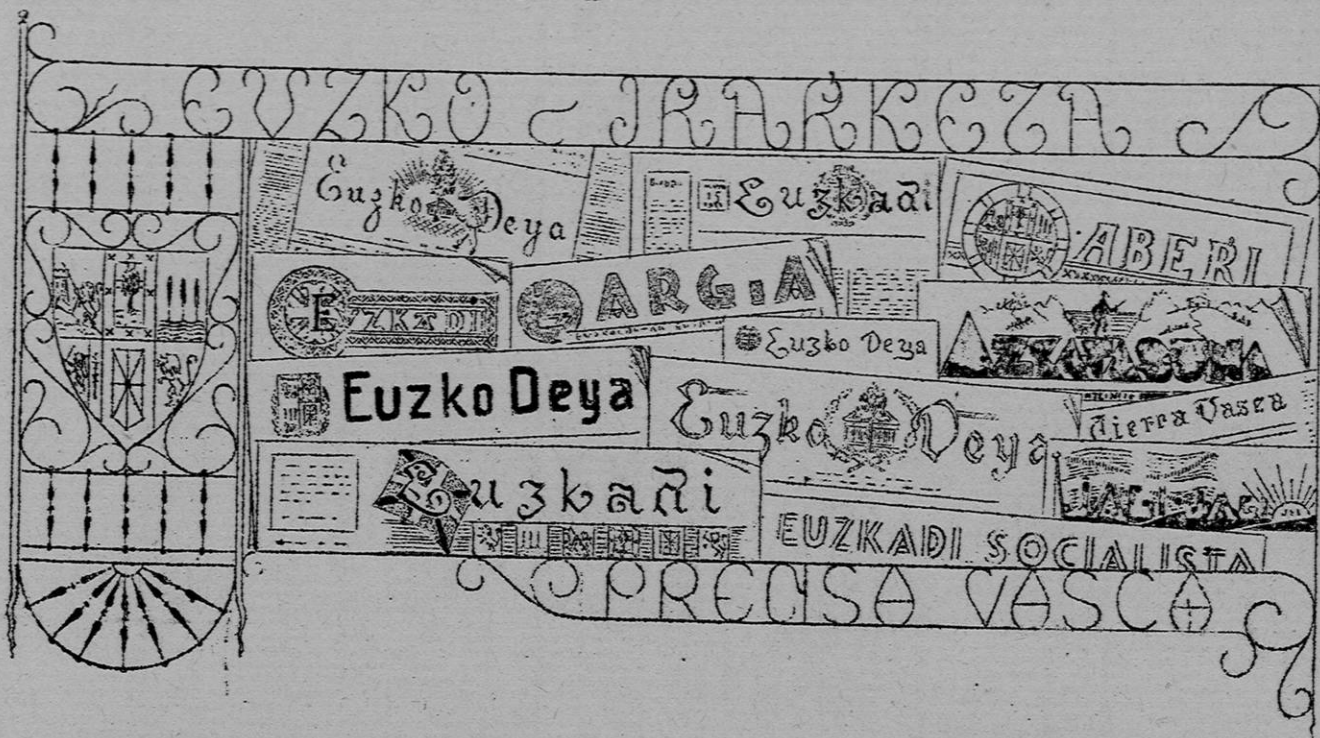 EUZKO - IRAŔKEZA
Euzko Deya
Euzkadi
ABERI
EUZKADI
ARGIA
Euzko Deya
Euzko Deya
Euzko Deya
Tierra Vasca
JAGI-JAGI
Euzkadi
EUZKADI SOCIALISTA
PRENSA VASCA